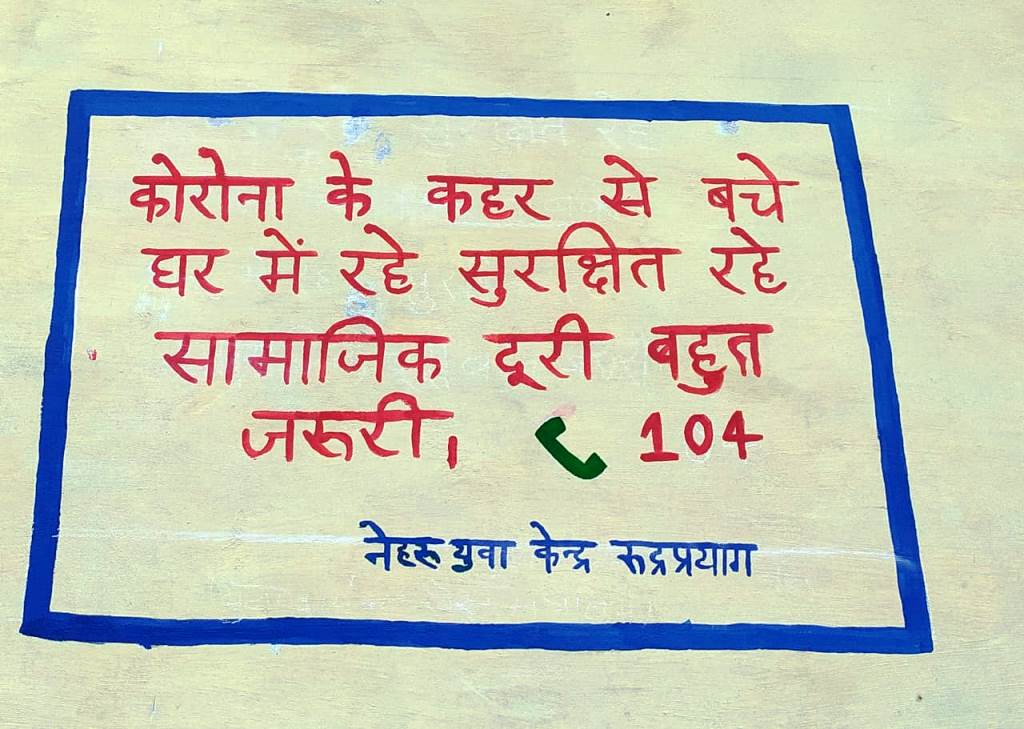 कोरोना के कहर से बचे
घर में रहे सुरक्षित रहे
सामाजिक दूरी बहुत
जरूरी। 104
नेहरू युवा केन्द्र रूद्रप्रयाग